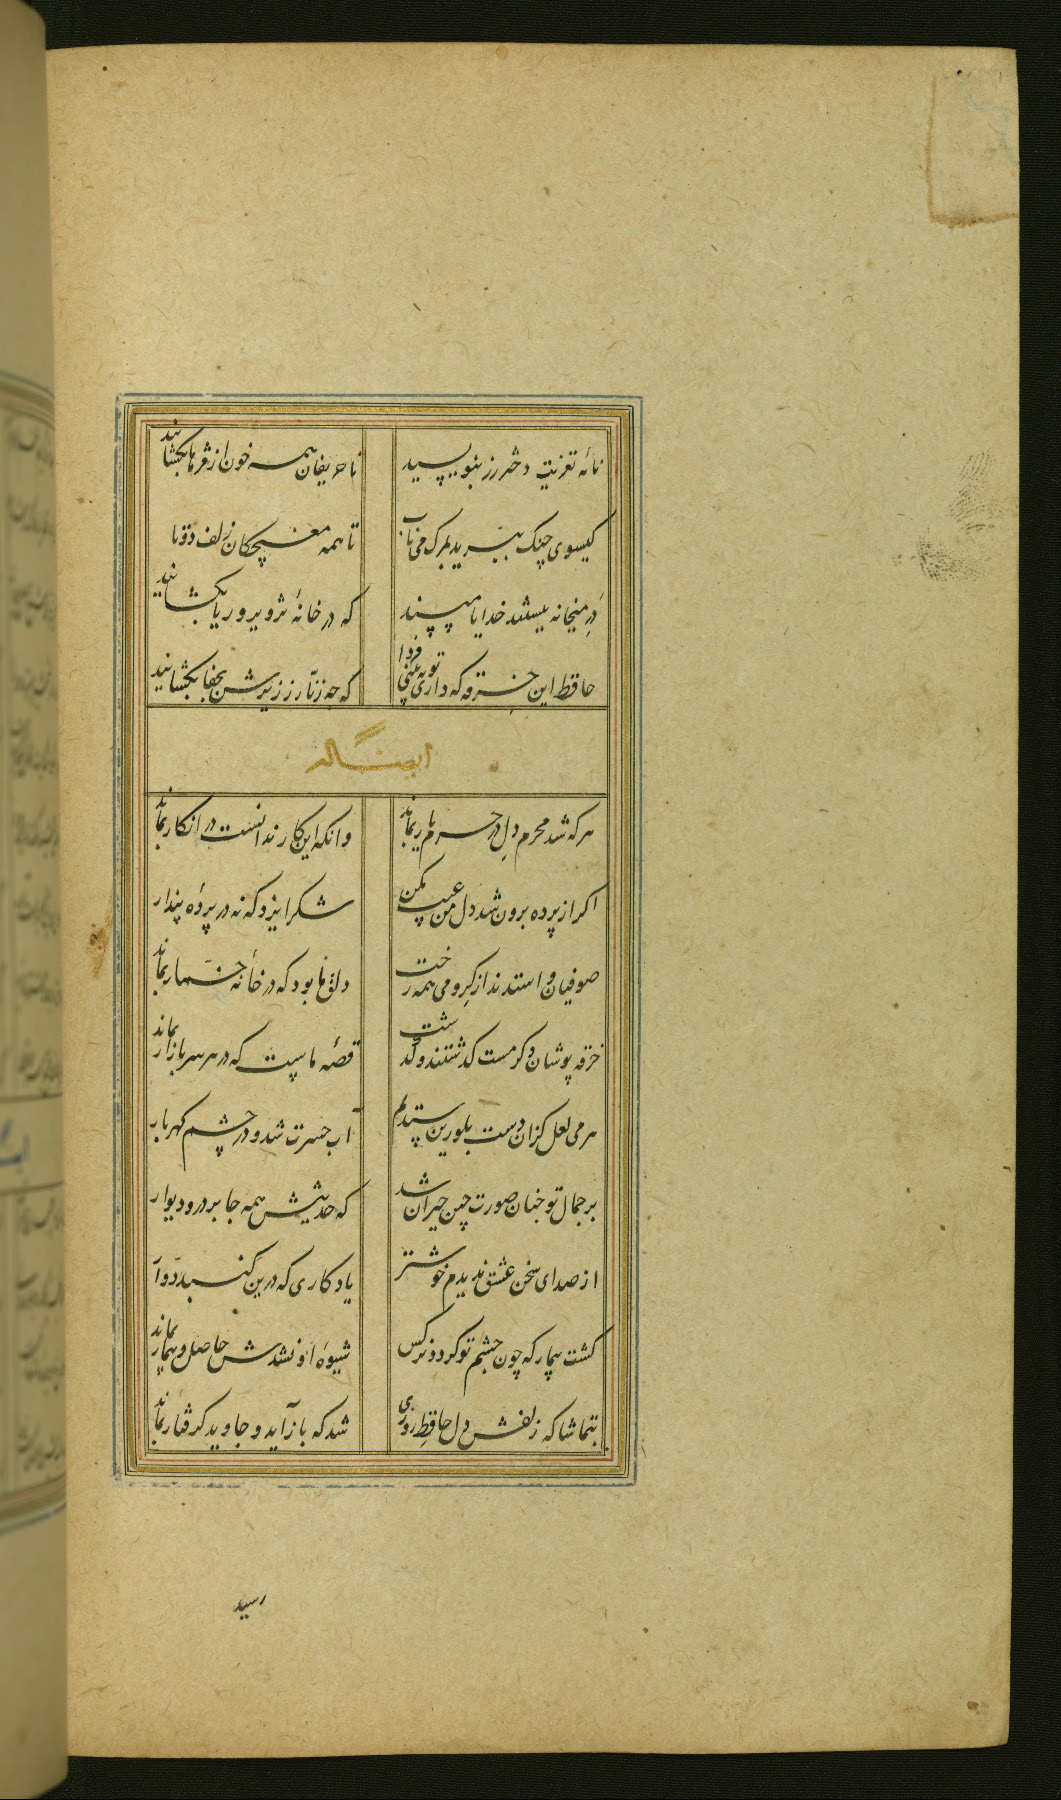 نامهٔ تعزیت دختر رز بنویسید تا حریفان همه خون از مژه‌ها بگشایند
گیسوی چنگ ببرید بمرگ می ناب تا همه مغبچگان زلف دوتا
در میخانه ببستند خدایا مپسند که در خانهٔ تزویر و ریا بگشایند
حافظ این خرقه که داری تو ببینی فردا که چه زنار ز زیرش بجفا بگشایند
ایضا له
هر که شد محرم دل در حرم یار بماند وانکه این کار ندانست در انکار بماند
اگر از پرده برون شد دل من عیب مکن شکر ایزد که نه در پردهٔ پندار
صوفیان واستدند از گرو می همه رخت دلق ما بود که در خانهٔ خمار بماند
خرقه پوشان دگر مست گذشتند و گذشت قصهٔ ماست که در هر سر بازار بماند
هر می لعل کزان دست بلورین ستدم آب حسرت شد و در چشم گهربار
بر جمال تو چنان صورت چین حیران شد که حدیثش همه جا بر در و دیوار
از صدای سخن عشق ندیدم خوشتر یادگاری که درین گنبد دوار
گشت بیمار که چون چشم تو گردد نرگس شیوهٔ او نشدش حاصل و بیمار بماند
بتماشاگه زلفش دل حافظ روزی شد که باز آید و جاوید گرفتار بماند
رسید